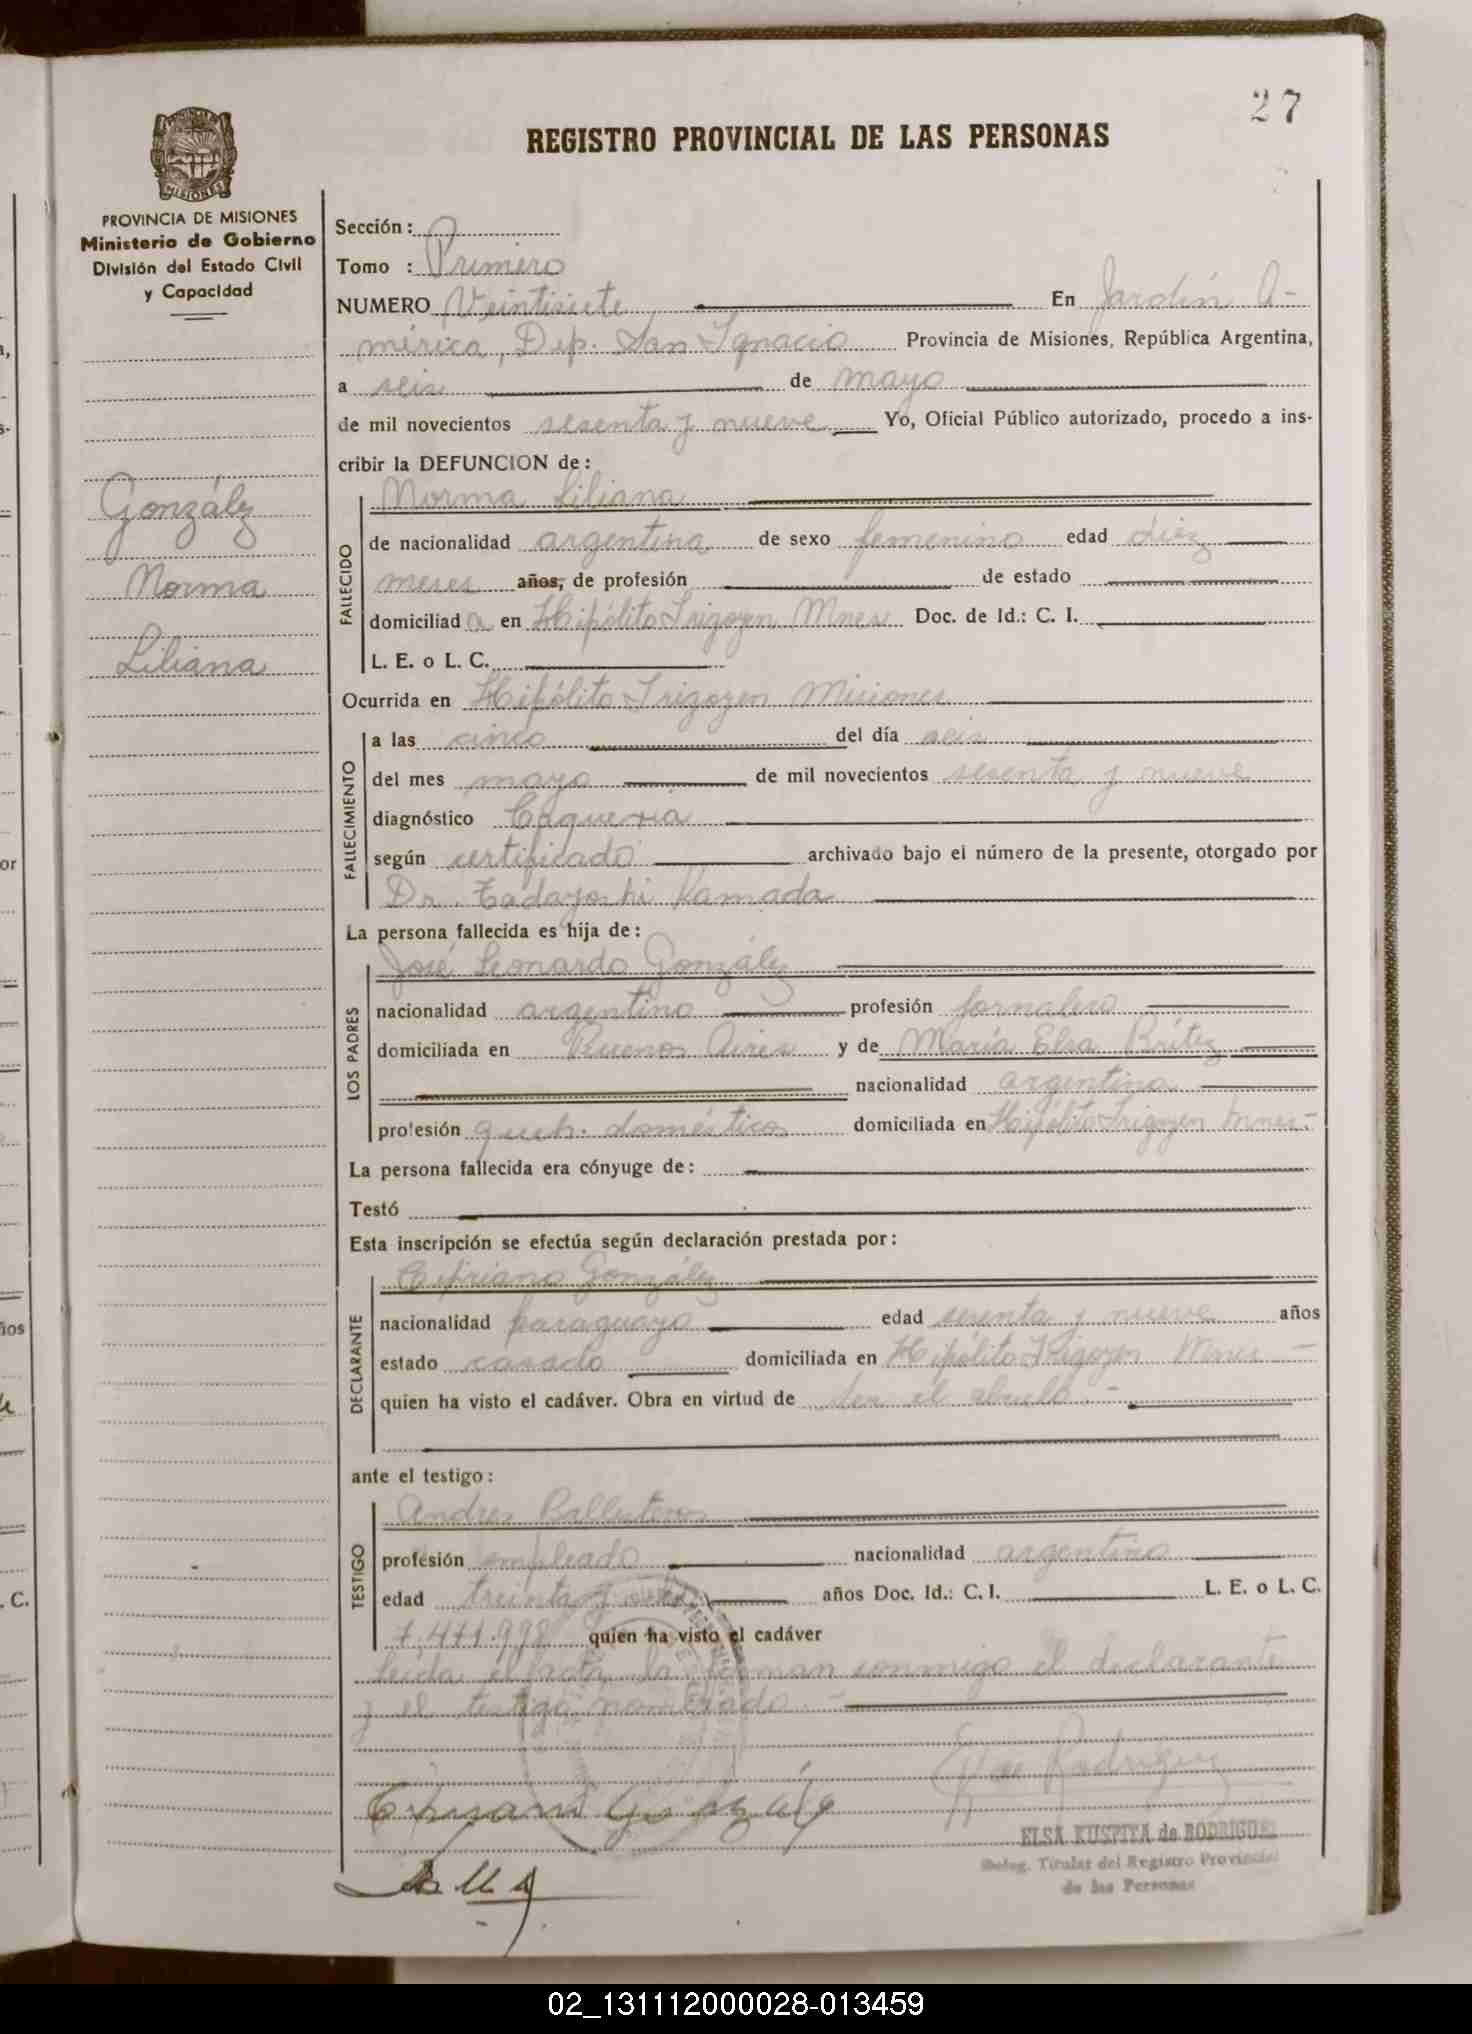 27
REGISTRO PROVINCIAL DE LAS PERSONAS
MISIONES
PROVINCIA DE MISIONES
Ministerio de Gobierno
División del Estado Civil
y Capacidad
González
Norma
Liliana
Sección:
Tomo : Primero
NUMERO Veintisiete En Jardín A-
mérica, Dep. San Ignacio Provincia de Misiones, República Argentina,
a seis de mayo
de mil novecientos sesenta y nueve Yo, Oficial Público autorizado, procedo a ins-
cribir la DEFUNCION de:
FALLECIDO
Norma Liliana
de nacionalidad argentina de sexo femenino edad diez
meses años, de profesión de estado
domiciliad a en Hipólito Irigoyen Mnes Doc. de Id.: C. I.
L. E. o L. C.
Ocurrida en Hipólito Irigoyen Misiones
FALLECIMIENTO
a las cinco del día seis
del mes mayo de mil novecientos sesenta y nueve
diagnóstico
según certificado archivado bajo el número de la presente, otorgado por
Dr. Tadayoshi Kamada
La persona fallecida es hija de:
LOS PADRES
José Leonardo González
nacionalidad argentino profesión jornalero
domiciliada en Buenos Aires y de María Elsa Brítez
nacionalidad argentina
profesión queh. domésticos domiciliada en Hipólito Irigoyen Mnes-
La persona fallecida era cónyuge de:
Testó
Esta inscripción se efectúa según declaración prestada por:
DECLARANTE
Cipriano González
nacionalidad paraguayo edad sesenta y nueve años
estado casado domiciliada en Hipólito Irigoyen Mnes -
quien ha visto el cadáver. Obra en virtud de ser el abuelo -
ante el testigo:
TESTIGO
Andres Ballesteros
profesión empleado nacionalidad argentino
edad treinta y años Doc. Id.: C. I. L. E. o L. C.
7.471.998 quien ha visto el cadáver
leida el acta la firman conmigo el declarante
y el testigo nombrado. -
Elsa Rodriguez
Cipriano González
ELSA KUSPITA de RODRIGUEZ
Deleg. Titular del Registro Provincial
de las Personas
02_131112000028-013459